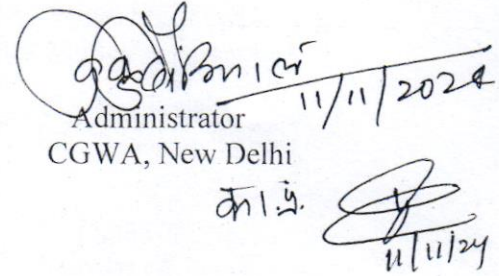 11/11/2024
Administrator
CGWA, New Delhi
का.प्र.
11/11/24